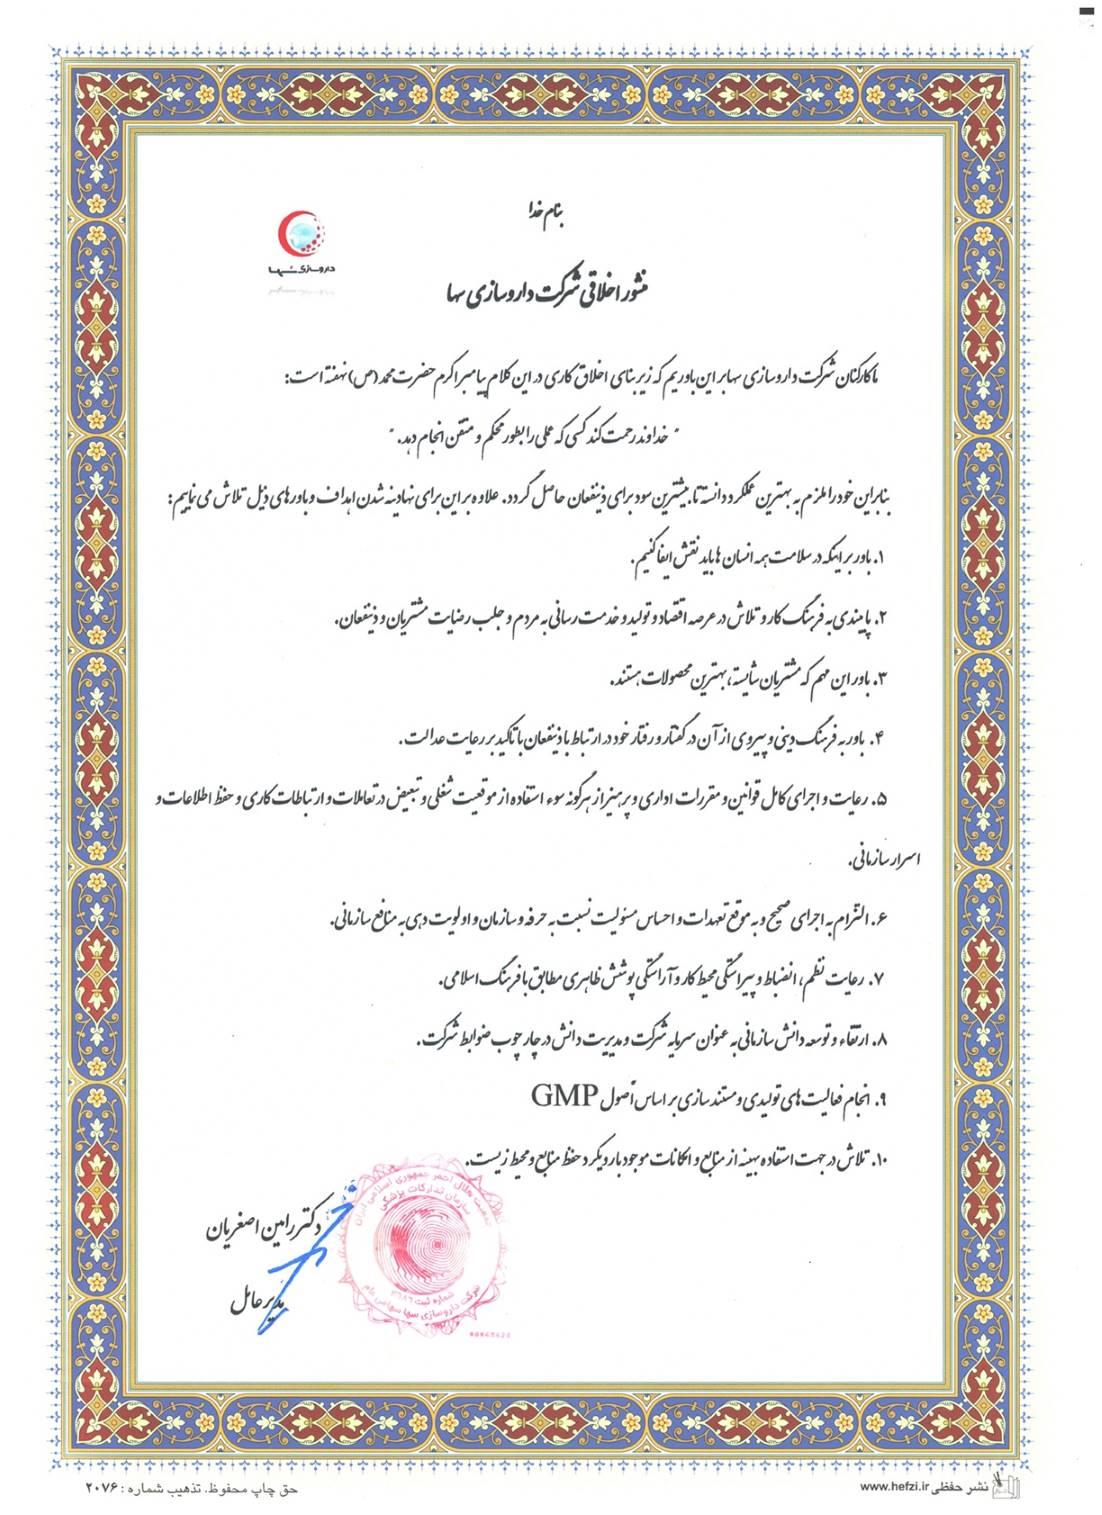 بنام خدا
داروسازی سها
منشور اخلاقی شرکت داروسازی سها
ما کارکنان شرکت داروسازی سها بر این باوریم که زیر بنای اخلاق کاری در این کلام پیامبر اکرم حضرت محمد (ص) نهفته است:
" خداوند رحمت کند کسی که عملی را بطور محکم و متقن انجام دهد. "
بنابراین خود را ملزم به بهترین عملکرد دانسته تا بیشترین سود برای ذینفعان حاصل گردد. علاوه بر این برای نهادینه شدن اهداف و باورهای ذیل تلاش می نماییم:
۱. باور بر اینکه در سلامت همه انسان ها باید نقش ایفا کنیم.
۲. پایبندی به فرهنگ کار و تلاش در عرصه اقتصاد و تولید و خدمت رسانی به مردم و جلب رضایت مشتریان و ذینفعان.
۳. باور این مهم که مشتریان شایسته، بهترین محصولات هستند.
۴. باور به فرهنگ دینی و پیروی از آن در گفتار و رفتار خود در ارتباط با ذینفعان با تاکید بر رعایت عدالت.
۵. رعایت و اجرای کامل قوانین و مقررات اداری و پرهیز از هرگونه سوء استفاده از موقعیت شغلی و تبعیض در تعاملات و ارتباطات کاری و حفظ اطلاعات و
اسرار سازمانی.
۶. التزام به اجرای صحیح و به موقع تعهدات و احساس مسئولیت نسبت به حرفه و سازمان و اولویت دهی به منافع سازمانی.
۷. رعایت نظم، انضباط و پیراستگی محیط کار و آراستگی پوشش ظاهری مطابق با فرهنگ اسلامی.
۸. ارتقاء و توسعه دانش سازمانی به عنوان سرمایه شرکت و مدیریت دانش در چارچوب ضوابط شرکت.
۹. انجام فعالیت های تولیدی و مستندسازی بر اساس اصول GMP
۱۰. تلاش در جهت استفاده بهینه از منابع و امکانات موجود با رویکرد حفظ منابع و محیط زیست.
جمعیت هلال احمر جمهوری اسلامی ایران
سازمان تدارکات پزشکی
شماره ثبت
شرکت داروسازی سها سهامی عام
دکتر رامین اصغریان
مدیر عامل
نشر حفظی www.hefzi.ir
حق چاپ محفوظ. تذهیب شماره : ۲۰۷۶